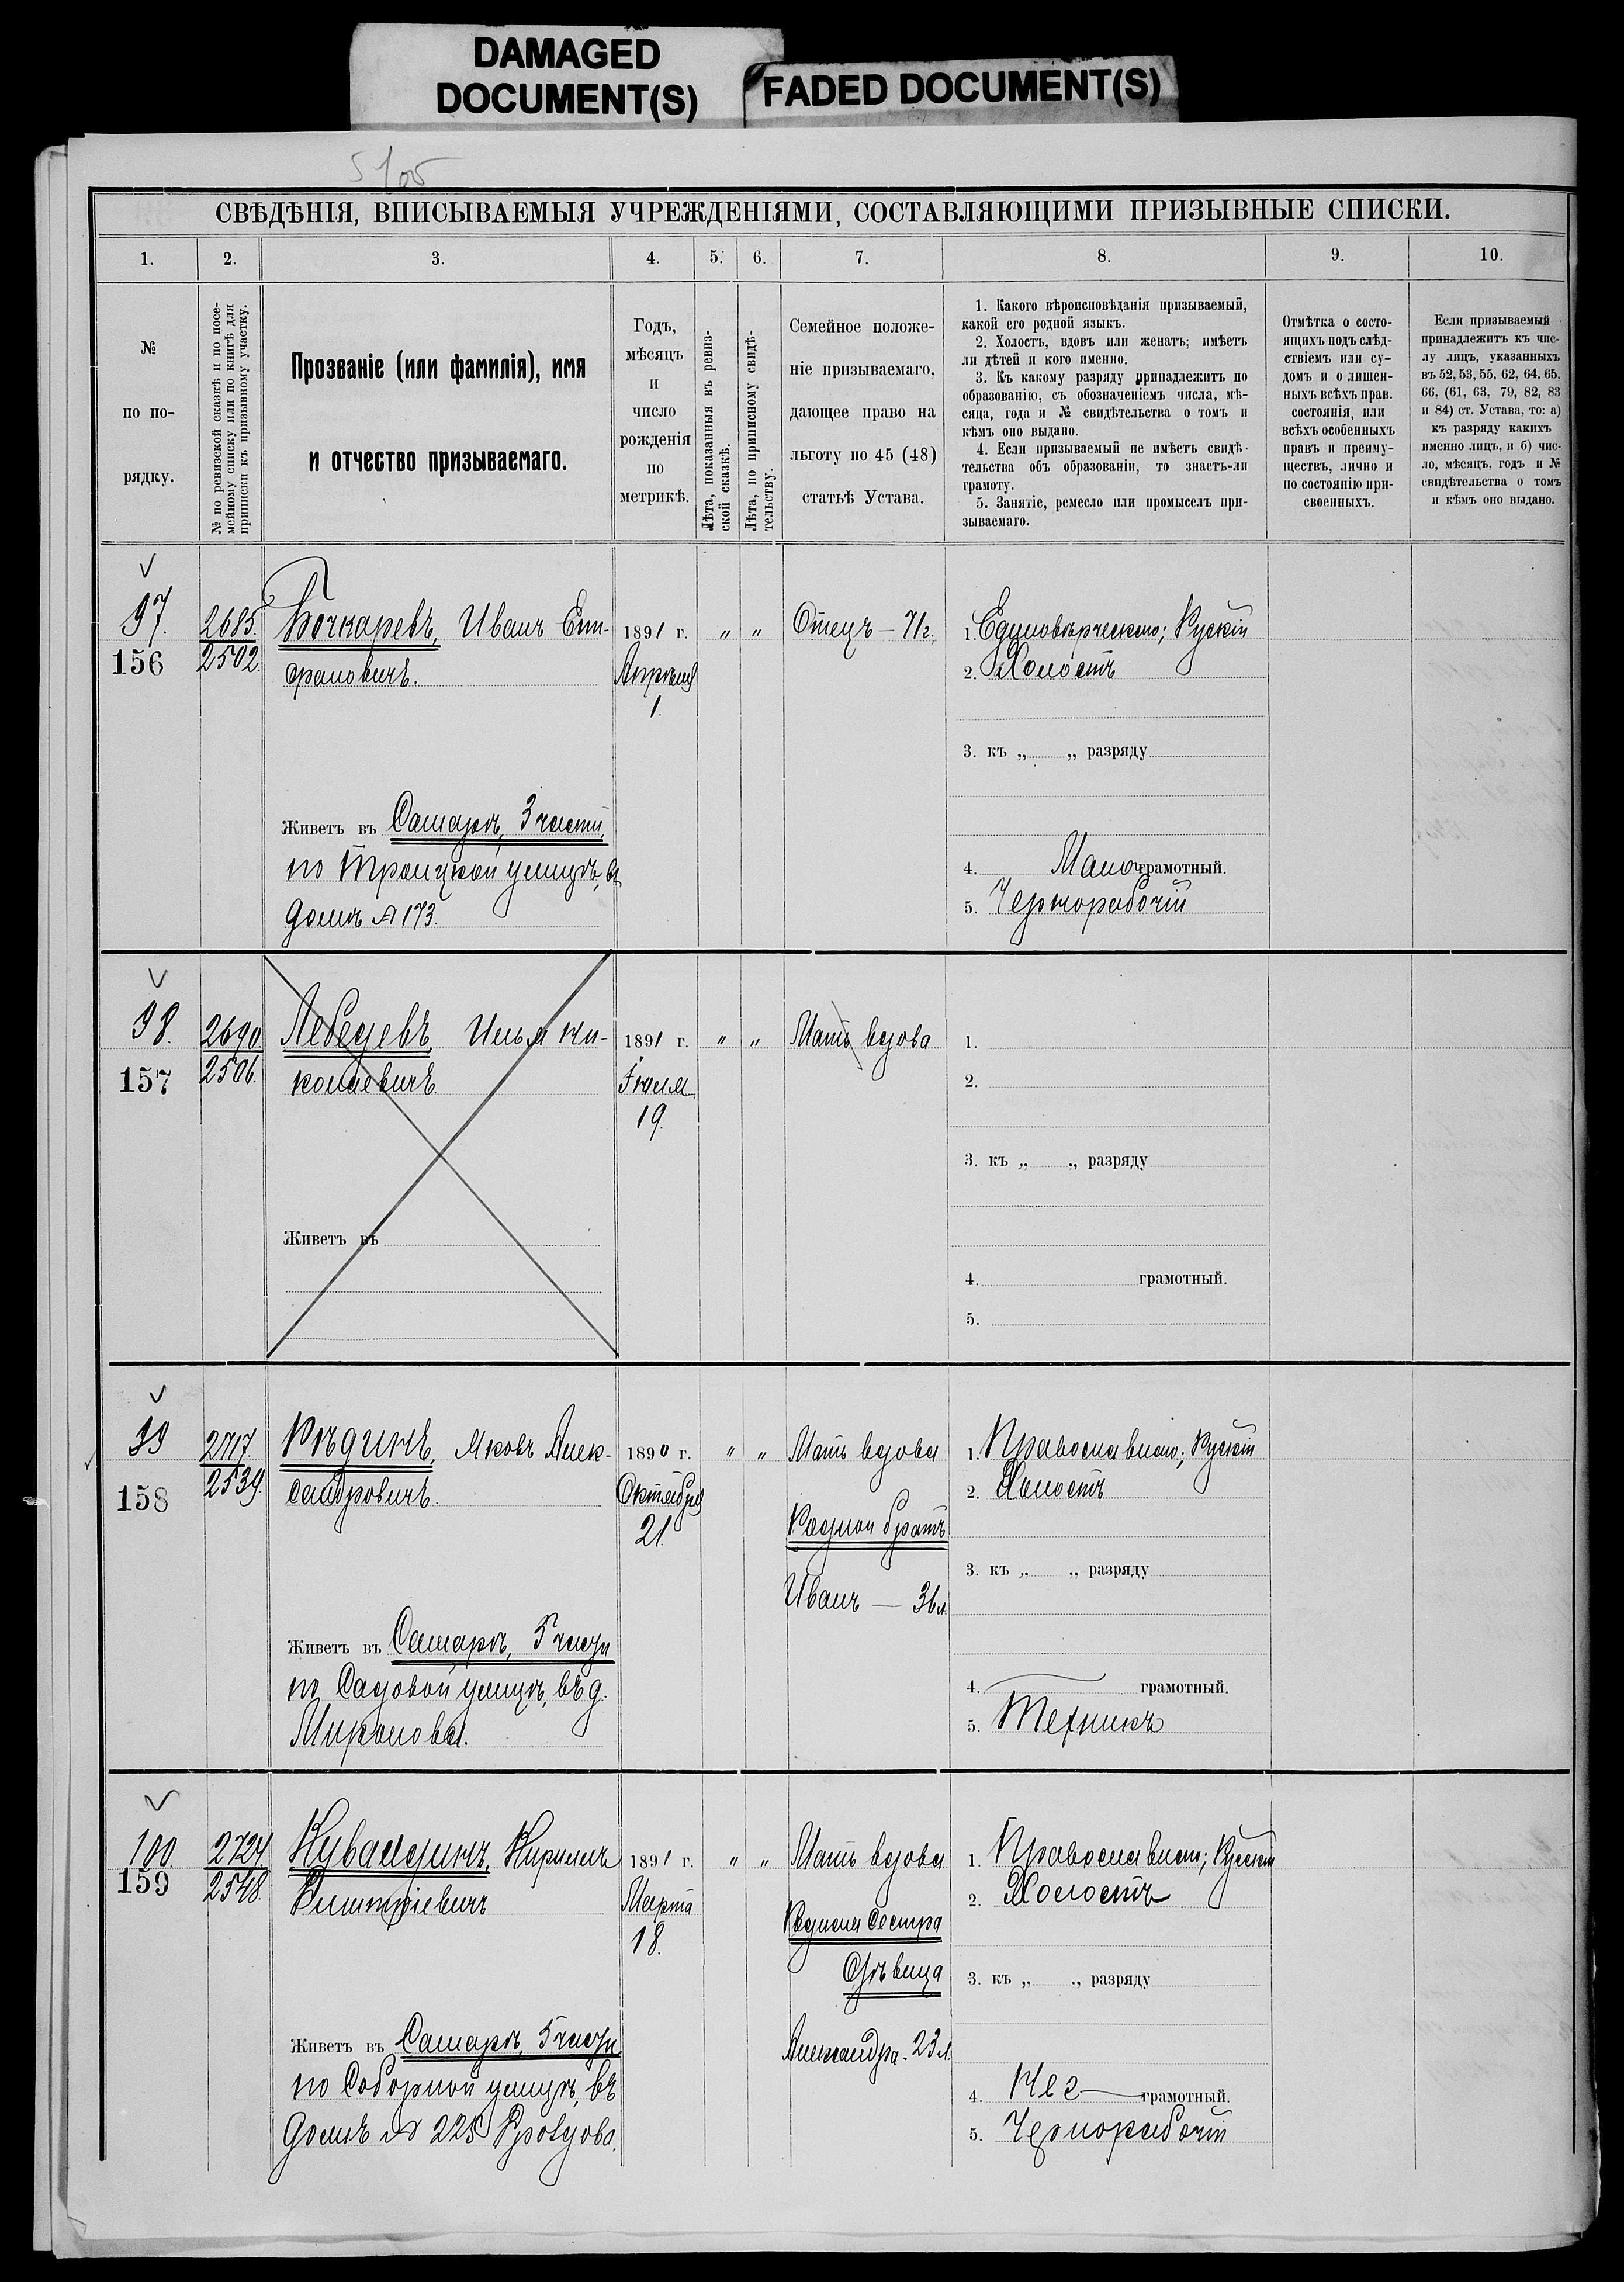 DAMAGED
DOCUMENT(S)
FADED DOCUMENT(S)
СВѢДѢНІЯ, ВПИСЫВАЕМЫЯ УЧРЕЖДЕНІЯМИ, СОСТАВЛЯЮЩИМИ ПРИЗЫВНЫЕ СПИСКИ.
1. 2. 3. 4. 5. 6. 7. 8. 9. 10.
№
по по-
рядку.
№ по ревизской сказкѣ и по посе-
мейному списку или по книгѣ для
приписки къ призывному участку.
Прозваніе (или фамилія), имя
и отчество призываемаго.
Годъ,
мѣсяцъ
и
число
рожденія
по
метрикѣ.
Лѣта, показанныя въ ревиз-
ской сказкѣ.
Лѣта, по приписному свидѣ-
тельству.
Семейное положе-
ніе призываемаго,
дающее право на
льготу по 45 (48)
статьѣ Устава.
1. Какого вѣроисповѣданія призываемый,
какой его родной языкъ.
2. Холостъ, вдовъ или женатъ; имѣетъ
ли дѣтей и кого именно.
3. Къ какому разряду принадлежитъ по
образованію, съ обозначеніемъ числа, мѣ-
сяца, года и № свидѣтельства о томъ и
кѣмъ оно выдано.
4. Если призываемый не имѣетъ свидѣ-
тельства объ образованіи, то знаетъ-ли
грамоту.
5. Занятіе, ремесло или промыселъ при-
зываемаго.
Отмѣтка о состо-
ящихъ подъ слѣд-
ствіемъ или су-
домъ и о лишен-
ныхъ всѣхъ прав.
состоянія, или
всѣхъ особенныхъ
правъ и преиму-
ществъ, лично и
по состоянію при-
своенныхъ.
Если призываемый
принадлежитъ къ чис-
лу лицъ, указанныхъ
въ 52, 53, 55, 62, 64, 65,
66, (61, 63, 79, 82, 83
и 84) ст. Устава, то: а)
къ разряду какихъ
именно лицъ, и б) чис-
ло, мѣсяцъ, годъ и №
свидѣтельства о томъ
и кѣмъ оно выдано.
97.
156
2685.
2502.
Бочкаревъ, Иванъ Епи-
фановичъ.
Живетъ въ Самарѣ, 3 части,
по Троицкой улицѣ, въ
домѣ № 173.
1891 г.
Апрѣля
1.
„ „
Отецъ — 71 г.
1. Единовѣрческаго; Рускій
2. Холостъ
3. къ „ „ разряду
4. Малограмотный.
5. Чернорабочій
98.
157
2690.
2506.
Лебедевъ, Илья Ни-
колаевичъ.
Живетъ въ
1891 г.
Іюля
19.
„ „
Мать вдова
1.
2.
3. къ „ „ разряду
4. грамотный.
5.
99
158
2717.
2539.
Рѣдинъ, Яковъ Алек-
сандровичъ.
Живетъ въ Самарѣ, 5 части
по Садовой улицѣ, въ д.
Миронова.
1890 г.
Октября
21.
„ „
Мать вдова
Родной братъ
Иванъ — 36 л.
1. Православнаго; Рускій
2. Холостъ
3. къ „ „ разряду
4. грамотный.
5. Техникъ
100.
159
2724.
2548.
Кувалдинъ, Кирилъ
Дмитріевичъ
Живетъ въ Самарѣ, 5 части
по Соборной улицѣ, въ
домѣ № 225
1891 г.
Марта
18.
„ „
Мать вдова
Родная сестра
дѣвица
Александра - 23 л.
1. Православнаго; Русскій
2. Холостъ
3. къ „ „ разряду
4. Не грамотный.
5. Чернорабочій